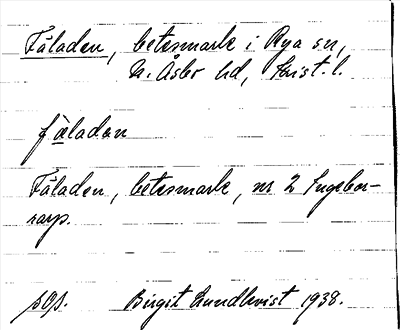 Fäladen, betesmark i Rya sn,
N. Åsbo hd, Krist. l.
fäladan
Fäladen, betesmark, nr 2 Ingebor-
rarp.
sOp. Birgit Lundkvist 1938.